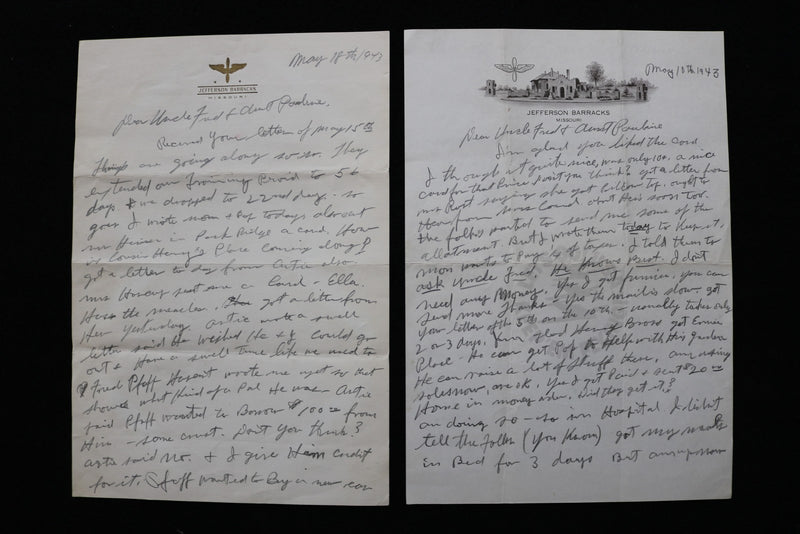 May 18th/1943
JEFFERSON BARRACKS
MISSOURI
Dear Uncle Fred & Aunt Pauline,
Received Your letter of May 15th
Things are going along so so. They
extended our Training Period to 54
days & we dropped to 22nd day - so
goes I wrote mom & Pop today also out
in Park Ridge a card. How
is Cousin Henry's Place coming along?
got a letter to day from Artie also.
Mrs sent me a Card - Ella.
Has the measles. got a letter from
Her Yesterday. Artie wrote a swell
letter said He wished He & I could go
out & Have a swell time like we used to
Fred Pfaff Hasent wrote me yet so that
shows what kind of a Pal He was Artie
said Pfaff wanted to Borrow $100.00 from
Him - some crust. Don't You Think?
Arts said no. & I give Him Credit
for it, Jeff wanted to Buy a new car
May 10th, 1943
JEFFERSON BARRACKS
MISSOURI
Dear Uncle Fred & Aunt Pauline
I'm glad you liked the Card.
I though it quite nice, was only 10¢, a nice
card for that Price don't you think? got a letter from
Mrs saying she got Pillow Top. ought to
Hear from Miss about Hers soon too.
The folks wanted to send me some of the
allotment. But I wrote them today to Keep it,
mom wants to Pay of taxes. I told them to
ask Uncle Fred, He Knows Best. I don't
need any Money. Yes I get you can
send more Thanks - Yes the mail is slow, got
Your letter of the 5th on the 10th - usually takes only
2 or 3 days. I'm glad Henry got Ernie
Place - He can get Pop to Help with His garden
He can raise a lot of stuff there, am using
now, are ok. Yes I got Paid & sent $20.00
Home in money order. Did they get it?
am doing so-so in Hospital. I didn't
tell the folks (You Know) got my
in Bed for 3 days But am up now